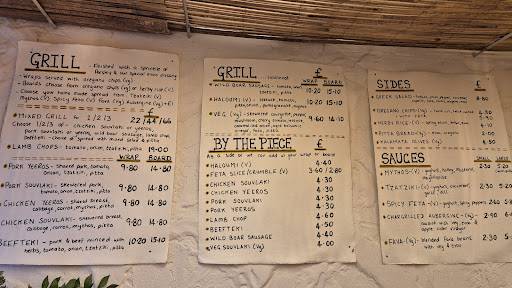 GRILL - Finished with a sprinkle of
Parsley & our special house dressing
• Wraps served with oregano chips (vg)
• Boards choose from oregano chips (vg) or herby rice (v)
• Choose your home made spread from; Tzatziki (v)
Mythos (v) Spicy feta (v) Fava (vg) Aubergine (vg)
£
• MIXED GRILL for 1/2/3 22/44/66
Choose 1/2/3 of - chicken souvlaki or yeeros,
pork souvlaki or yeeros, wild boar sausage, lamb chop,
beefteki - choice of spread with mixed salad & pitta
• LAMB CHOPS - tomato, onion, tzatziki, pitta 19.00
WRAP BOARD
• PORK YEEROS - shaved pork, tomato, 9.80 14.80
onion, tzatziki, pitta
• PORK SOUVLAKI - skewered pork, 9.80 14.80
tomato, onion, tzatziki, pitta
• CHICKEN YEEROS - shaved breast, 9.80 14.80
cabbage, carrot, mythos, pitta
• CHICKEN SOUVLAKI - skewered breast, 9.80 14.80
cabbage, carrot, mythos, pitta
BEEFTEKI - pork & beef minced with 10.20 15.10
herbs, tomato, onion, tzatziki, pitta
GRILL continued £
WRAP BOARD
• WILD BOAR SAUSAGE - tomato, onion, 10.20 15.10
tzatziki, pitta
• HALOUMI (v) - tomato, 10.20 15.10
mythos, pitta
• VEG (vg) 9.60 14.10
BY THE PIECE £
As a side or we can add to your wrap or board
• HALOUMI (v) 4.40
• FETA SLICE/CRUMBLE (v) 3.60/2.80
• CHICKEN SOUVLAKI 4.30
• CHICKEN YEEROS 4.30
• PORK SOUVLAKI 4.30
• PORK YEEROS 4.30
• LAMB CHOP 6.00
• BEEFTEKI 4.50
• WILD BOAR SAUSAGE 4.50
• VEG SOUVLAKI (vg) 4.00
SIDES £
• GREEK SALAD 8.80
• OREGANO CHIPS (vg)
• HERBY RICE (v)
• PITTA BREAD (vg)
• KALAMATA OLIVES (vg)
SAUCES SMALL LARGE
• MYTHOS (v) - yoghurt, honey, mustard, 2.30 5.20
mayonnaise
• TZATZIKI (v) - yoghurt, cucumber, 2.30
• SPICY FETA (v) - yoghurt, peppers, 2.90
• CHARGRILLED AUBERGINE (vg) 2.90
apple cider vinegar
• FAVA (vg) - blended fava beans 2.30
with veg & evoo